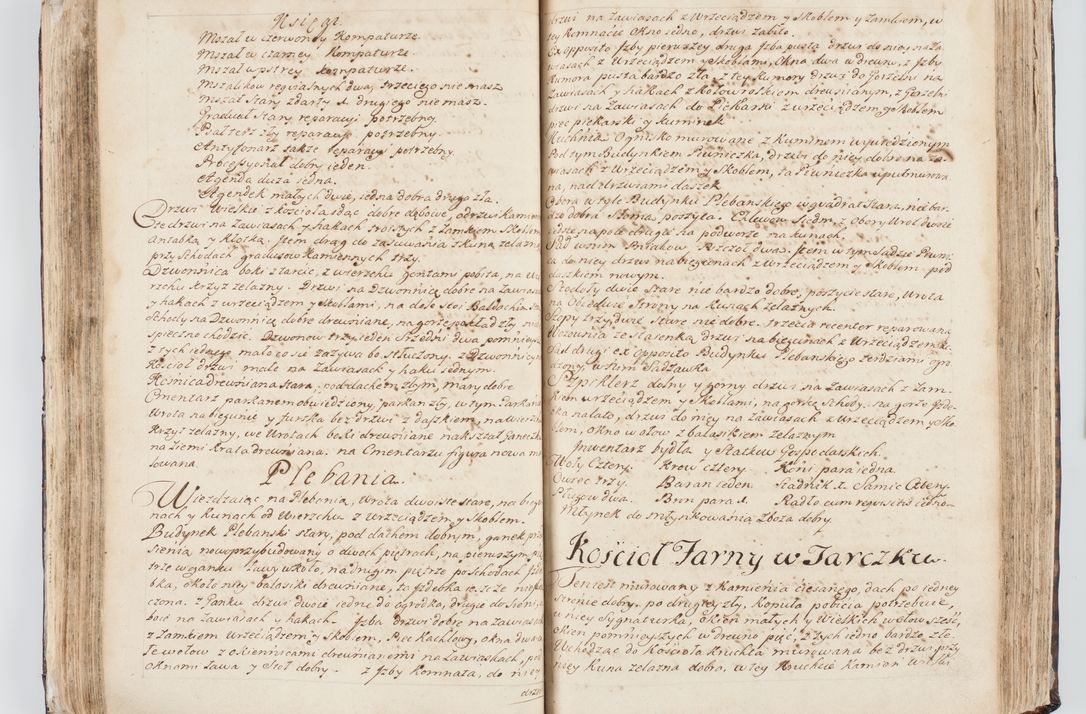 Księgi.
Mszał w czerwoney Kompaturze
Mszał w czarney Kompaturze.
Mszał w pstrey Kompaturze.
Mszalikow requialnych dwa, trzeciego nie masz
Mszał Stary zdarty 1. drugiego nie masz.
Graduał Stary reparacyi potrzebny
Psałterz zły reparacyi potrzebny
Antyfonarz także reparacyi potrzebny
Processyonał dobry ieden.
Agenda duża iedna.
Agendek małych dwie, iedna dobra druga zła.
Drzwi wielkie z kościoła idąc dobre dębowe, odrzwi Kamien
te drzwi na zawiasach y hakach troistych z zamkiem Skoblem
Antabką y Klotką. Item drąg do zasuwania z kuną zelazną
przy Schodach gradusow Kamiennych trzy.
Dzwonnica boki z tarcic, z wierzchu Gontami pobita, na wi
rzchu krzyż żelazny. Drzwi na Dzwonnicę dobre na zawiasach
y hakach z wrzeciądzem y Skoblami, na dole
Schody na Dzwonnicę dobre drewniane, na gorze podłoga zły
spieczno chodzic. Dzwonow trzy ieden Srzedni dwa pomnieysze
z tych iednego mało co sie zazywa bo stłuczony. z Dzwonnicy
Kościoł drzwi małe na zawiasach y haku iednym.
Kośnica drewniana stara, pod dachem złym, mary dobre
Cmentarz parkanem obwiedziony, parkan zły, w tym Parkanie
Wrota na biegunie y furtka bez drzwi z daszkiem, na wierzchu
Krzyż zelazny, we Wrotach beki drewniane nakształt Ganecz
na ziemi krata drewniana. na Cmentarzu figura nowa m
lowana.
Plebania.
Wiezdzaiąc na Plebanią, Wrota dwoiste stare, na biegu
nach y Kunach od Wierzchu z Wrzeciądzem y Skoblem.
Budynek Plebanski stary, pod dachem dobrym, ganek przed
Sienią nowoprzybudowany o dwoch piętrach, na pierwszym
trze w ganku ławy wkoło, na drugim piętrze po Schodach Izde
bka, około niey balasiki drewniane, ta Izdebka ieszcze niesk
czona. z Ganku drzwi dwoie iedne do ogrodka, drugie do Sieni,
boie na zawiasach y hakach. Izba drzwi dobre na zawiasach
z Zamkiem Wrzeciądzem y Skoblem, Piec Kachlowy, okna dwa
Te w ołow z okiennicami drewnianemi na zawiaskach, pod
Oknami ława y Stoł dobry. z Izby Komnata, do niey
drzwi
drzwi na zawiasach z Wrzeciądzem y Skoblem y Zamkiem, w
tey Komnacie Okno iedno, drzwi zabito.
Ex opposito Izby pierwszey druga Izba pusta drzwi do niey na za
wiasach z Wrzeciądzem y Skoblami, Okna dwa w drewno, z Izby
Komora pusta bardzo zła, z tey Komory drzwi do Gorzelni na
zawiasach y hakach z kołowrotkiem drewnianym, z Gorzelni
drzwi na zawiasach do Piekarni z wrzeciądzem y Skoblem
piec piekarski y kuminek
Kuchnia. Ognisko murowane z Kuminem wywiedzionym
Pod tym Budynkiem Piwniczka, drzwi do niey dobre na za
wiasach z Wrzeciądzem y Skoblem, ta Piwniczka
na, nad drzwiami daszek
Obora w tyle Budynku Plebanskiego w quadrat Stara, nie bar
dzo dobra Słomą poszyta. Chlewow Siedm, z Obory Wrot dwoie
iedne na pole drugie na podworze na kunach.
Sad w nim Przakow Pszczoł dwa. Item w tym Sadzie Piwni
ca do niey drzwi na biegunach z Wrzeciądzem y Skoblem, pod
daszkiem nowym.
Stodoły dwie Stare nie bardzo dobre, poszycie stare, Wrota
na Obiedwie Strony na Kunach zelaznych.
Szopy trzy, dwie Stare nie dobre, trzecia recenter reparowana
Wozownia ze Stajenką drzwi na biegunach z Wrzeciądzem
Sad drugi ex opposito Budynku Plebanskiego zerdziami ogro
dzony, w nim Sadzawka
Szpiklerz dolny y gorny drzwi na zawiasach z Zam
kiem wrzeciądzem y Skoblami, na gorke Schody. na gorze Podło
ga nalato, drzwi do niey na zawiasach z Wrzeciądzem y Sko
blem, Okno w ołow z balasikiem zelaznym
Inwentarz bydła y Statkow Gospodarskich.
Woły Cztery. Krow cztery. Koni para iedna.
Owiec trzy. Baran ieden. Stadnik 1. Swinie Cztery.
Pługow dwa. Bron para 1. Radło cum requisitis iedno
Młynek do młynkowania Zboza dobry.
Kościoł Farny w Tarczku.
Ten iest murowany z Kamienia ciesanego, dach po iedney
Stronie dobry, po drugiey zły, Kopuła pobicia potrzebuie,
w niey Sygnaturka, Okien małych y Wielkich w ołow sześć,
okien pomnieyszych w drewno pięć, z tych iedno bardzo złe.
Wchodząc do Kościoła Kruchta murowana bez drzwi przy
niey Kuna zelazna dobra. W tey Kruchcie Kamien wielki